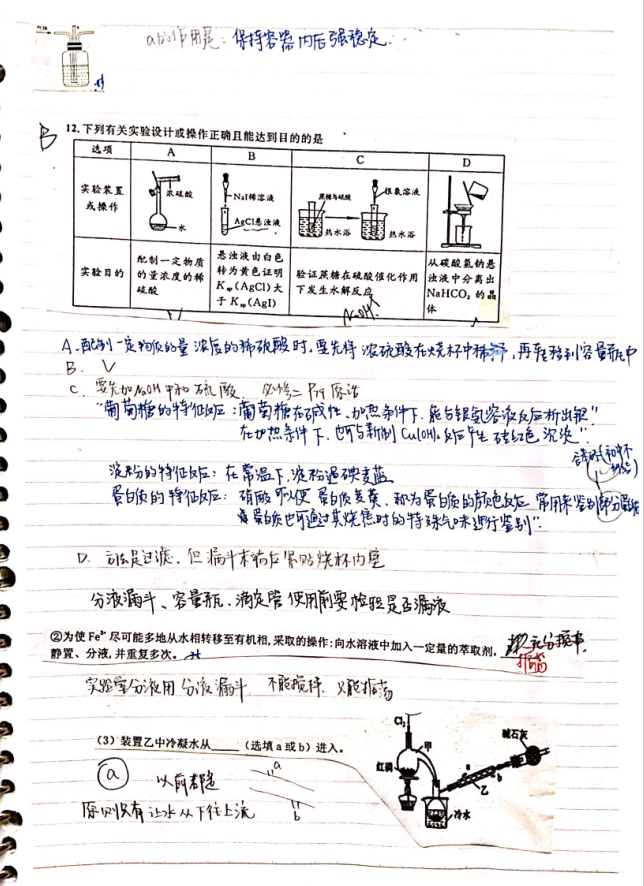 a b的作用是：保持容器内压强稳定．
12.下列有关实验设计或操作正确且能达到目的的是
B
选项 A B C D
实验装置或操作
浓硫酸
水
NaI稀溶液
AgCl悬浊液
蔗糖与硫酸
热水浴
银氨溶液
热水浴
实验目的
配制一定物质的量浓度的稀硫酸
悬浊液由白色转为黄色证明Ksp(AgCl)大于Ksp(AgI)
验证蔗糖在硫酸催化作用下发生水解反应
从碳酸氢钠悬浊液中分离出NaHCO₃的晶体
NaOH
A.配制一定物质的量浓度的稀硫酸时，要先将浓硫酸在烧杯中稀释，再转移到容量瓶中
B. √
C. 要先加NaOH中和硫酸
"葡萄糖的特征反应：葡萄糖在碱性、加热条件下，能与银氨溶液反应析出银"
在加热条件下，也可与新制Cu(OH)₂反应产生砖红色沉淀"
淀粉的特征反应：在常温下，淀粉遇碘变蓝
蛋白质的特征反应：硝酸可以使蛋白质变黄，称为蛋白质的颜色反应，常用来鉴别部分蛋白质
蛋白质也可通过其烧焦时的特殊气味进行鉴别"
D. 方法是过滤，但漏斗末端应紧贴烧杯内壁
分液漏斗、容量瓶、滴定管使用前要检验是否漏液
②为使Fe³⁺尽可能多地从水相转移至有机相,采取的操作:向水溶液中加入一定量的萃取剂,
静置、分液,并重复多次。
充分振荡
实验室分液用分液漏斗 不能搅拌 只能振荡
(3)装置乙中冷凝水从____（选填a或b）进入。
a 以前都选
原则只有让水从下往上流
a
b
Cl₂
甲
红磷
碱石灰
a
b
乙
冷水